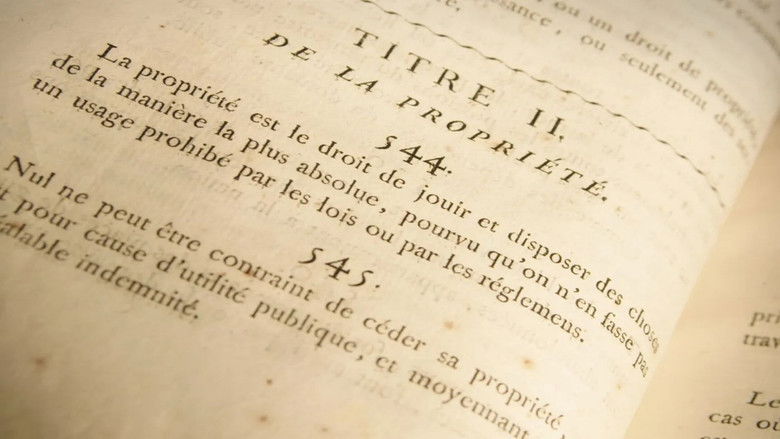 ou un droit de propriété,
ou seulement des
TITRE II.
DE LA PROPRIÉTÉ.
544.
La propriété est le droit de jouir et disposer des choses
de la manière la plus absolue, pourvu qu'on n'en fasse pas
un usage prohibé par les lois ou par les réglemens.
545.
Nul ne peut être contraint de céder sa propriété,
pour cause d'utilité publique, et moyennant
indemnité.
Le
cas ou